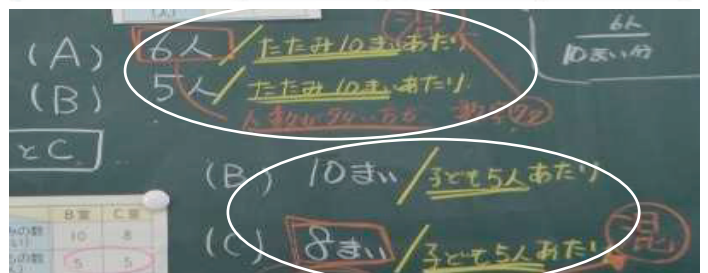 (人)
(A) 6人/たたみ10まいあたり
(B) 5人/たたみ10まいあたり
人数が多い方が 数字
混
6人
10まい分
とC
(B) 10まい/子ども5人あたり
(C) 8まい/子ども5人あたり
混
B室 C室
みの数 10 8
もの数 5 5